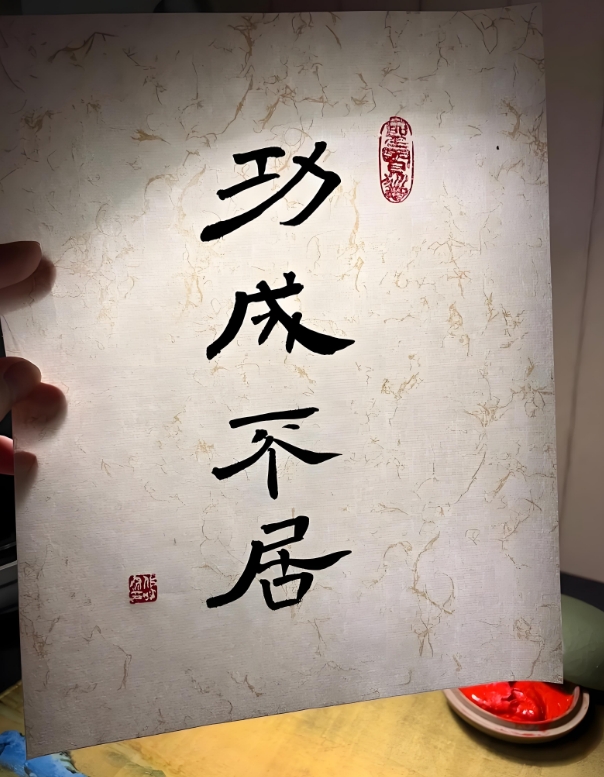 功成不居